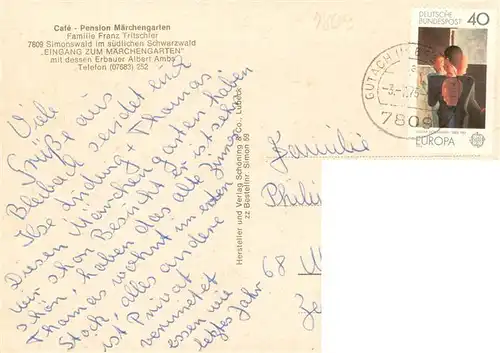 Café - Pension Märchengarten
Familie Franz Tritschler
7809 Simonswald im südlichen Schwarzwald
"EINGANG ZUM MÄRCHENGARTEN"
mit dessen Erbauer Albert Ambs
Telefon (07683) 252
7809
DEUTSCHE
BUNDESPOST
40
EUROPA
GUTACH
7809
Hersteller und Verlag Schöning & Co., Lübeck
zz Bestellnr. Simon 59
Viele
Grüße aus
Bleibach sendet euch
Ilse Ludwig + Thomas
Diesen Märchengarten haben
wir schon Besucht er ist sehr
schön, haben das alte Zimmer
Thomas wohnt im ersten
Stock, alles andere
ist Privat
vermietet
essen wie
letztes Jahr
Familie
Phili
68